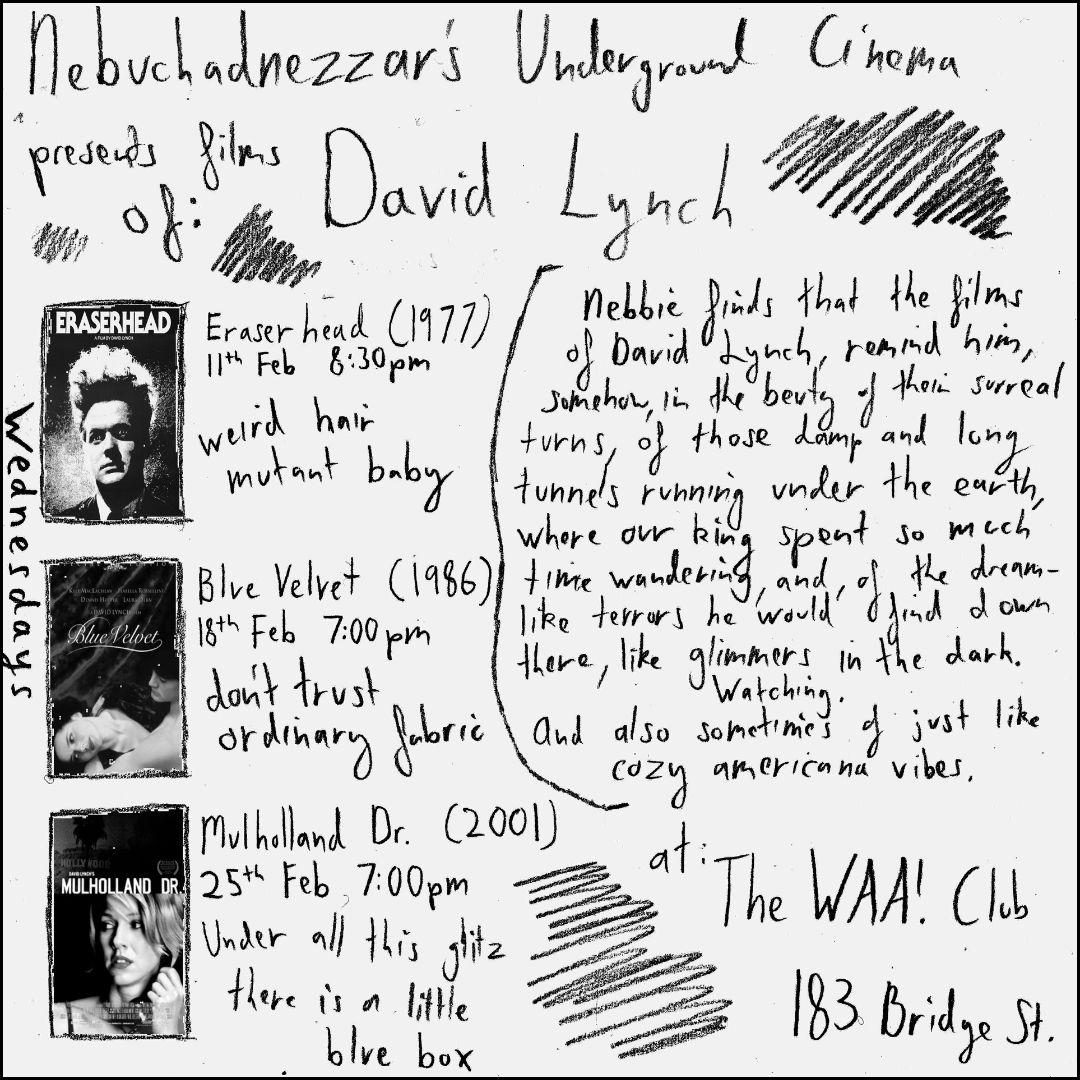 Nebuchadnezzar's Underground Cinema
presents films
of: David Lynch
Wednesdays
ERASERHEAD
A FILM BY DAVID LYNCH
Eraserhead (1977)
11th Feb 8:30pm
weird hair
mutant baby
KYLE MACLACHLAN ISABELLA ROSSELLINI
DENNIS HOPPER LAURA DERN
Blue Velvet
Blue Velvet (1986)
18th Feb 7:00pm
don't trust
ordinary fabric
HOLLYWOOD
DAVID LYNCH'S
MULHOLLAND DR.
Mulholland Dr. (2001)
25th Feb 7:00pm
Under all this glitz
there is a little
blue box
Nebbie finds that the films
of David Lynch, remind him,
somehow, in the beuty of their surreal
turns, of those damp and long
tunnels running under the earth,
where our king spent so much
time wandering, and, of the dream-
like terrors he would find down
there, like glimmers in the dark.
Watching.
And also sometimes of just like
cozy americana vibes.
at: The WAA! Club
183 Bridge St.